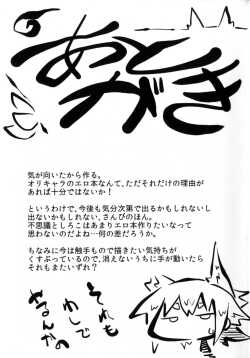 あとがき
気が向いたから作る。
オリキャラのエロ本なんて、ただそれだけの理由が
あれば十分ではないか！
というわけで、今後も気分次第で出るかもしれないし
出ないかもしれない、さんぴのほん。
不思議としろこはあまりエロ本作りたいなって
思わないのだよね…何の差だろうか。
ちなみに今は触手もので描きたい気持ちが
くすぶっているので、消えないうちに手が動いたら
それもまたいずれ？
それも
わしで
やるんか